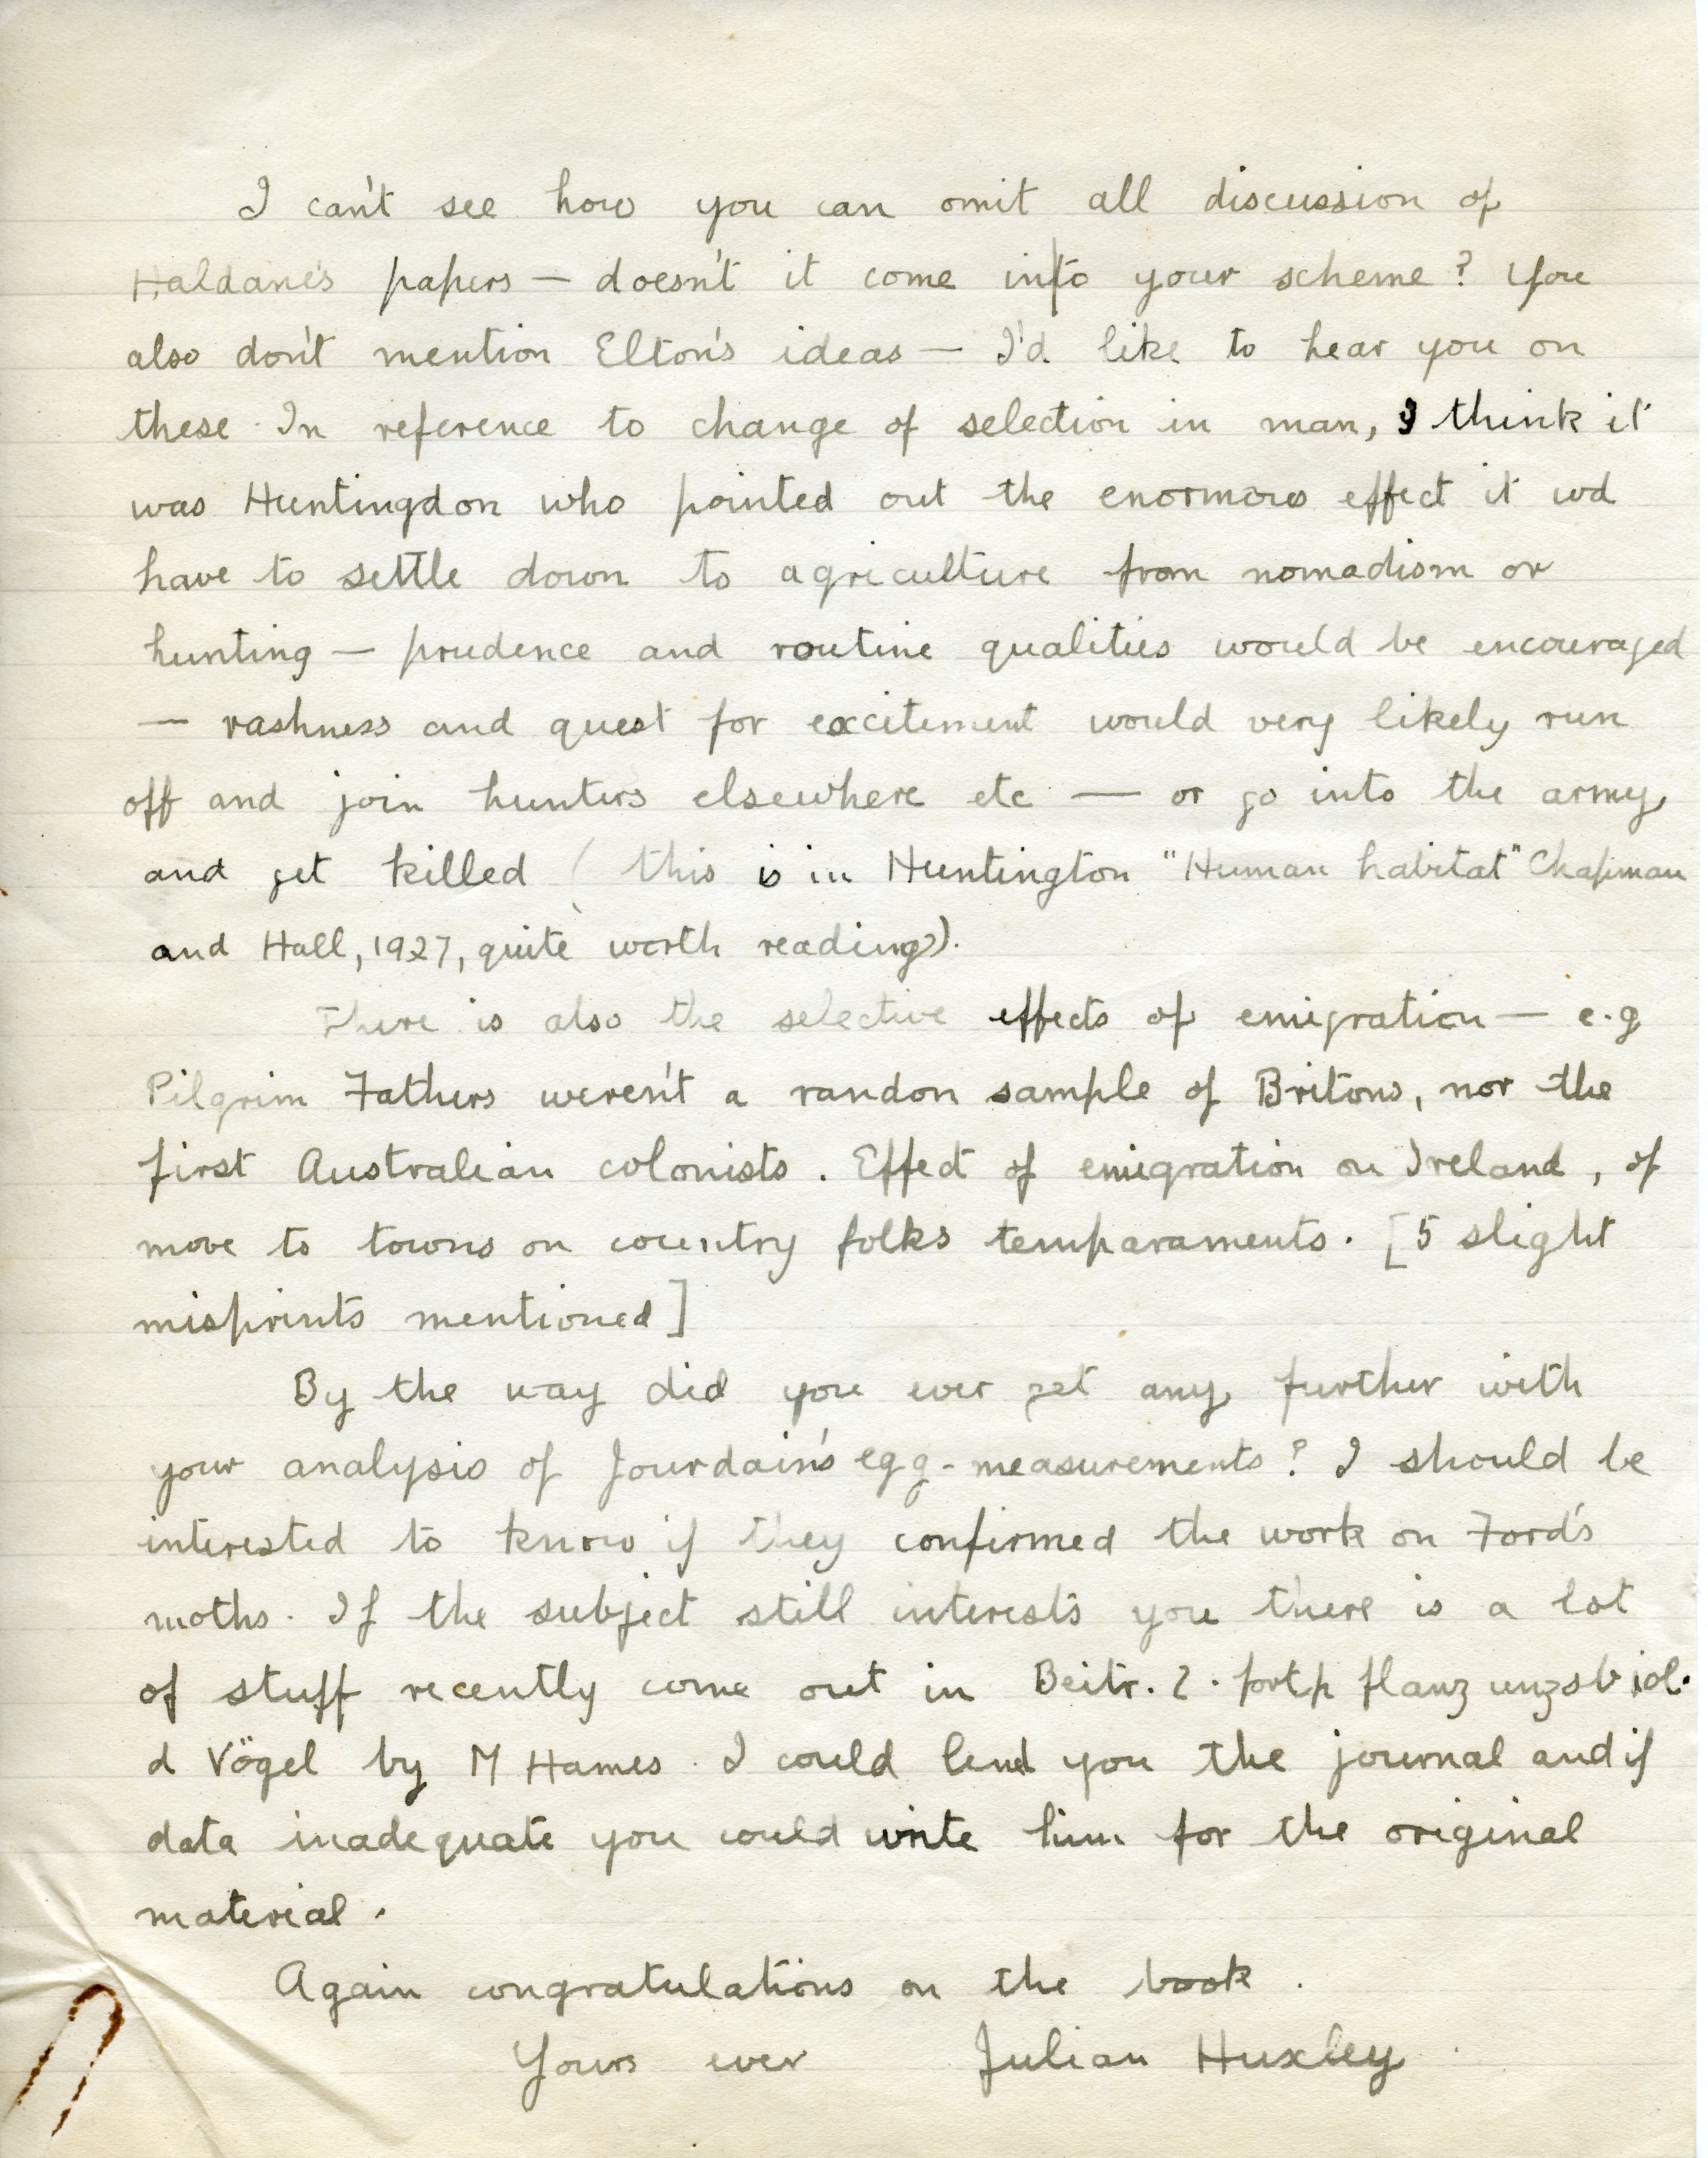 I can't see how you can omit all discussion of
Haldane's papers — doesn't it come into your scheme? You
also don't mention Elton's ideas — I'd like to hear you on
these. In reference to change of selection in man, I think it
was Huntingdon who pointed out the enormous effect it wd
have to settle down to agriculture from nomadism or
hunting — prudence and routine qualities would be encouraged
— rashness and quest for excitement would very likely run
off and join hunters elsewhere etc — or go into the army
and get killed (this is in Huntington "Human habitat" Chapman
and Hall, 1927, quite worth reading).
There is also the selective effects of emigration — e.g
Pilgrim Fathers weren't a randon sample of Britons, nor the
first Australian colonists. Effect of emigration on Ireland, of
move to towns on country folks temparaments. [5 slight
misprints mentioned]
By the way did you ever get any further with
your analysis of Jourdain's egg-measurements? I should be
interested to know if they confirmed the work on Ford's
moths. If the subject still interests you there is a lot
of stuff recently come out in Beitr. ?.
d Vögel by M Hames. I could lend you the journal and if
data inadequate you could write him for the original
material.
Again congratulations on the book.
Yours ever Julian Huxley